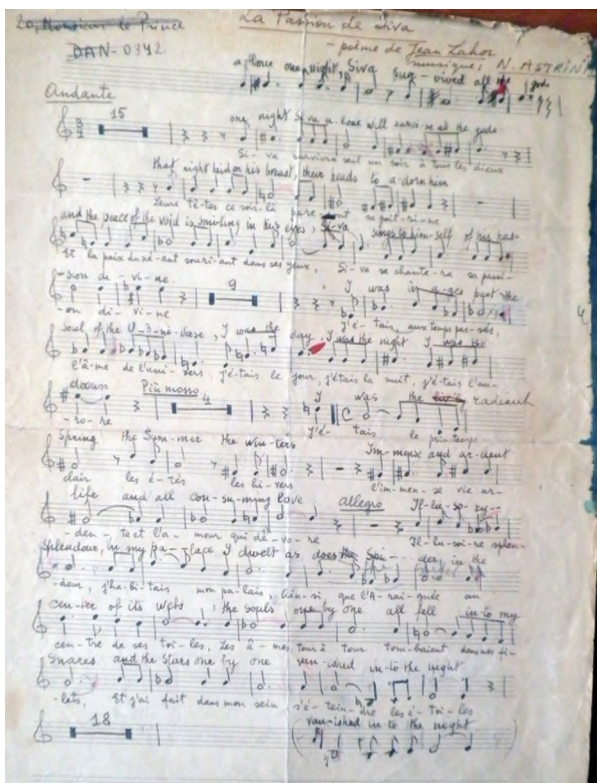 20, Monsieur le Prince
La Passion de Siva
DAN-0342
- poème de Jean Lahor
musique: N. ASTRIN
alone one night, Siva sur-vived all the gods
Andante
15
one night Si-va a-lone will survive all the gods
Si-va survivra seul un soir à tous les dieux
that night laid on his breast, their heads to a-dorn him
Leurs tê-tes ce soir-là pare-ront sa poi-tri-ne
and the peace of the void is smiling in his eyes, Si-va sings to him-self of his pas-
Et la paix du né-ant souri-ant dans ses yeux, Si-va se chante-ra sa passi-
-sion di-vine.
9
I was in ages past the
-on di-vi-ne
J'é-tais, aux temps pas-sés,
Soul of the U-ni-verse, I was the day, I was the night I was the
l'â-me de l'uni-vers j'é-tais le jour, j'étais la nuit, j'é-tais l'au-
dawn
Più mosso
4
I was the radiant
-ro-re
J'é-tais le prin-temps
Spring the Sum-mer the win-ters
Im-mense and ar-dent
clair les é-tés les hi-vers
l'im-men-se vie ar-
life and all con-su-ming love
allegro
Il-lu-so-ry
-den-te et l'a-mour qui dé-vo-re
Il-lu-soi-re splen-
Splendour, in my pa-lace I dwelt as does the Spi-der in the
-deur, j'ha-bi-tais mon pa-lais, Ain-si que l'A-rai-gnée au
cen-ter of its webs, the souls one by one all fell in-to my
cen-tre de ses toi-les, Les â-mes tour à tour tom-baient dans mes fi-
Snares and the Stars one by one van-ished in-to the night
-lets, Et j'ai fait dans mon sein s'é-tein-dre les é-toi-les
18
van-ished in-to the night